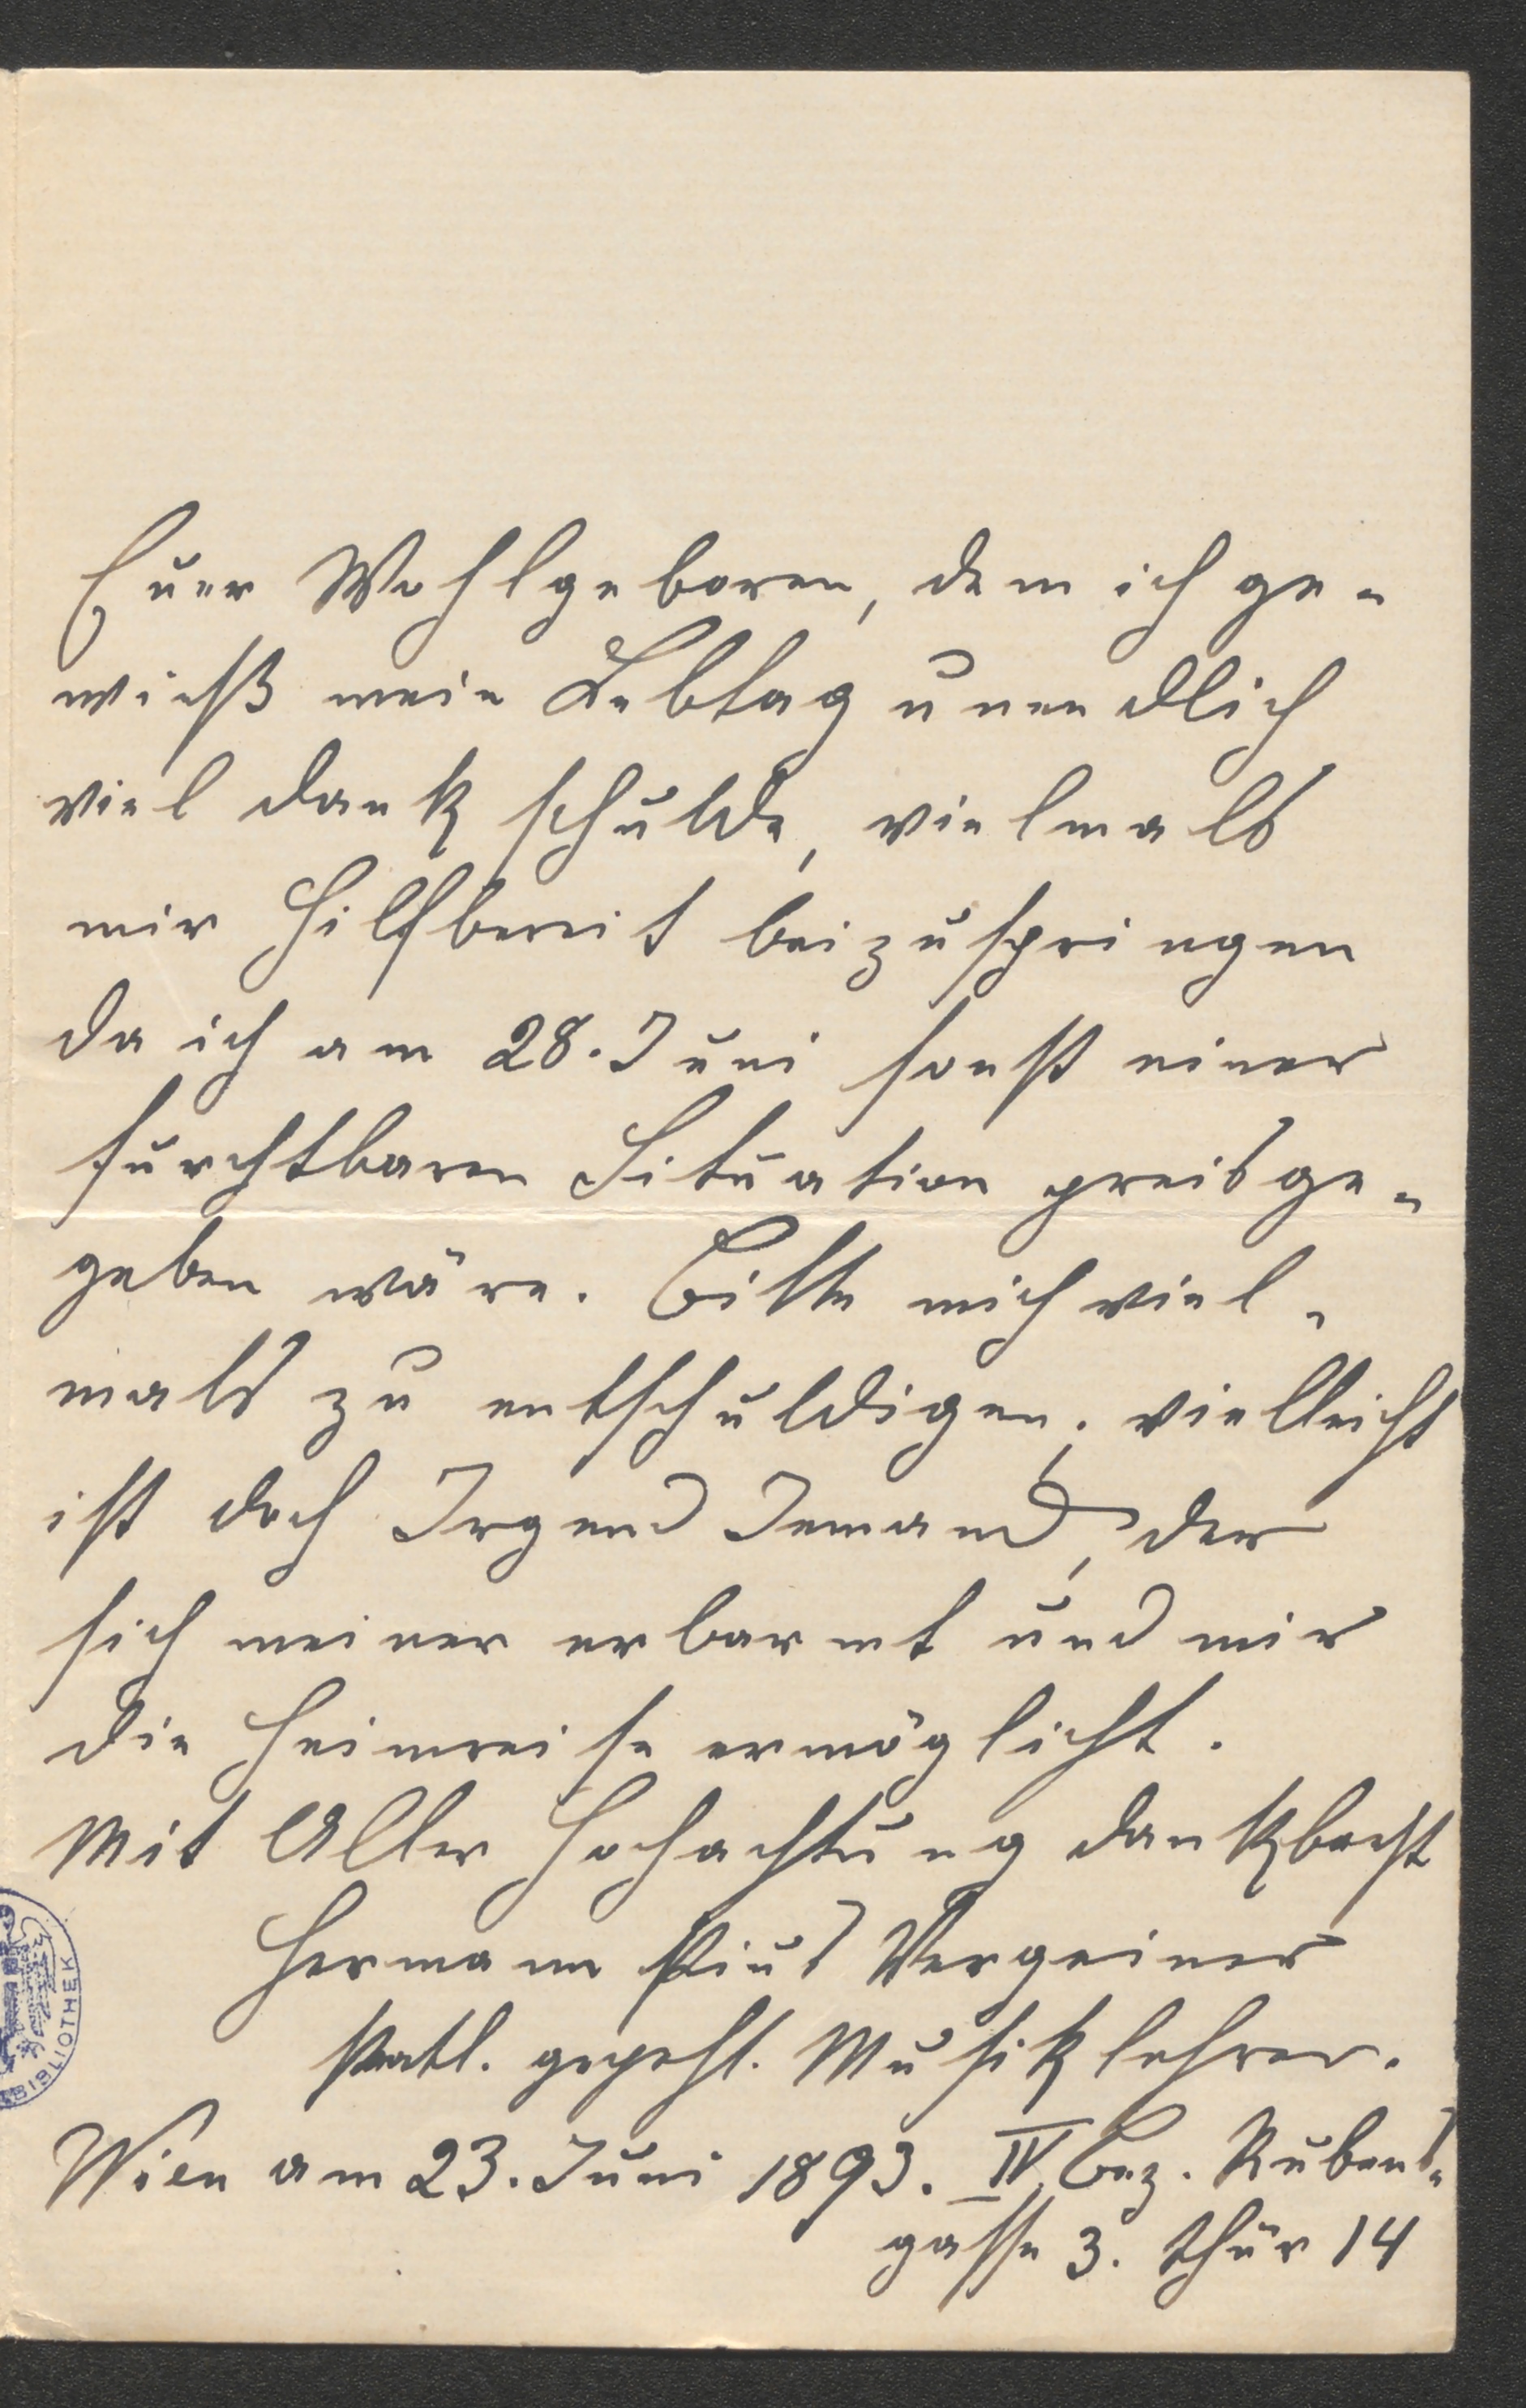 Euer Wohlgeboren, dem ich ge-
wieß mein Lebtag unendlich
viel dank schulde, vielmals
mir Hilfbereit beizuspringen
da ich am 28. Juni sonst einer
furchtbaren Situation preisge-
geben wäre. Bitte mich viel-
mals zu entschuldigen; vielleicht
ist doch Irgend Jemand, der
sich meiner erbarmt und mir
die Heimreise ermöglicht.
Mit Aller Hochachtung dankbarst
Hermann Pius Vergeiner
statl. geprft. Musiklehrer.
Wien am 23. Juni 1893. IV. Bez. Rubens-
gasse 3. Thür 14
BIBLIOTHEK